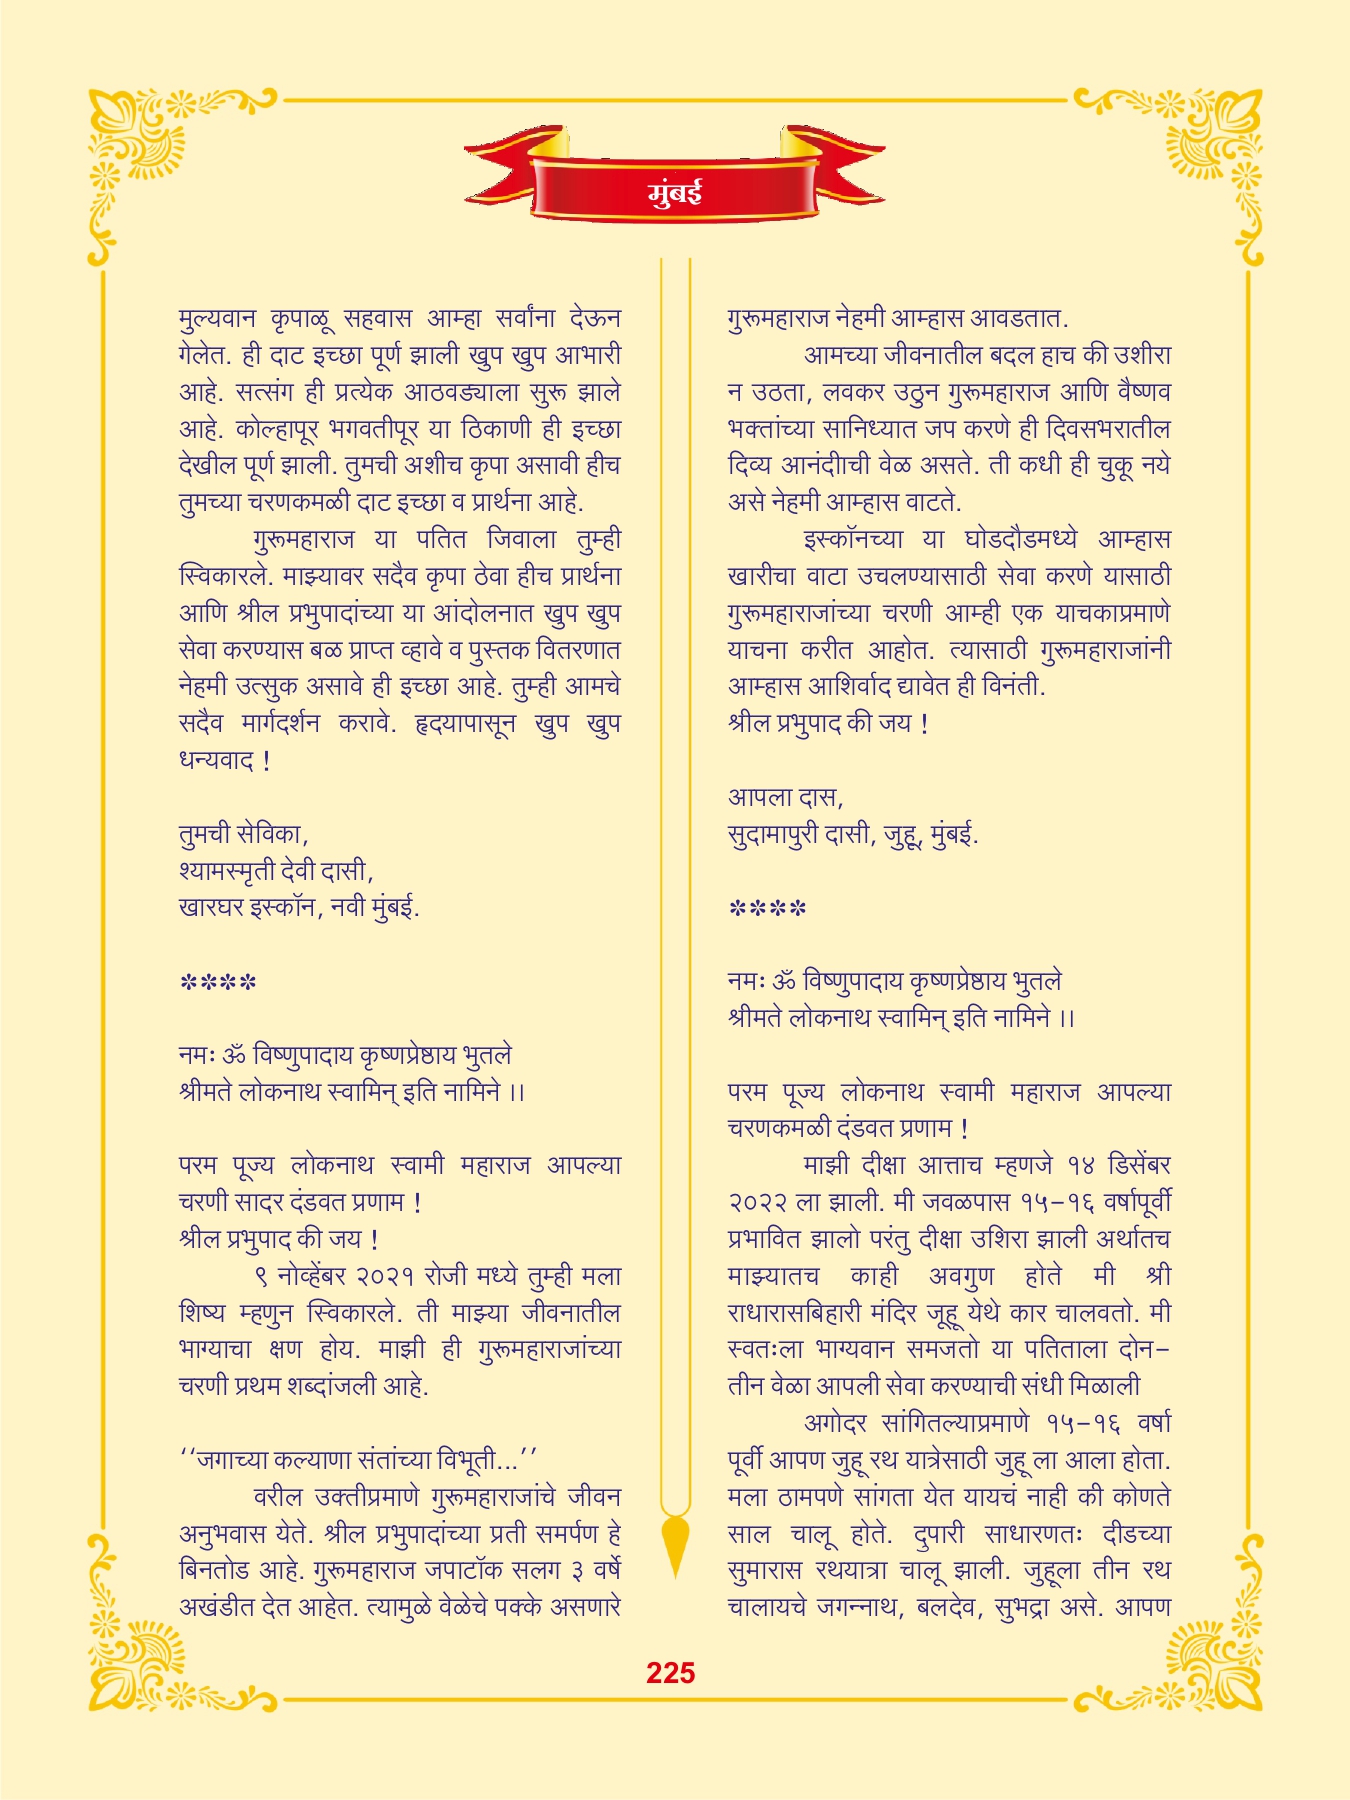 मुंबई
मुल्यवान कृपाळू सहवास आम्हा सर्वांना देऊन
गेलेत. ही दाट इच्छा पूर्ण झाली खुप खुप आभारी
आहे. सत्संग ही प्रत्येक आठवड्याला सुरू झाले
आहे. कोल्हापूर भगवतीपूर या ठिकाणी ही इच्छा
देखील पूर्ण झाली. तुमची अशीच कृपा असावी हीच
तुमच्या चरणकमळी दाट इच्छा व प्रार्थना आहे.
गुरूमहाराज या पतित जिवाला तुम्ही
स्विकारले. माझ्यावर सदैव कृपा ठेवा हीच प्रार्थना
आणि श्रील प्रभुपादांच्या या आंदोलनात खुप खुप
सेवा करण्यास बळ प्राप्त व्हावे व पुस्तक वितरणात
नेहमी उत्सुक असावे ही इच्छा आहे. तुम्ही आमचे
सदैव मार्गदर्शन करावे. हृदयापासून खुप खुप
धन्यवाद !
तुमची सेविका,
श्यामस्मृती देवी दासी,
खारघर इस्कॉन, नवी मुंबई.
****
नमः ॐ विष्णुपादाय कृष्णप्रेष्ठाय भुतले
श्रीमते लोकनाथ स्वामिन् इति नामिने ।।
परम पूज्य लोकनाथ स्वामी महाराज आपल्या
चरणी सादर दंडवत प्रणाम !
श्रील प्रभुपाद की जय !
९ नोव्हेंबर २०२१ रोजी मध्ये तुम्ही मला
शिष्य म्हणुन स्विकारले. ती माझ्या जीवनातील
भाग्याचा क्षण होय. माझी ही गुरूमहाराजांच्या
चरणी प्रथम शब्दांजली आहे.
‘‘जगाच्या कल्याणा संतांच्या विभूती...’’
वरील उक्तीप्रमाणे गुरूमहाराजांचे जीवन
अनुभवास येते. श्रील प्रभुपादांच्या प्रती समर्पण हे
बिनतोड आहे. गुरूमहाराज जपाटॉक सलग ३ वर्षे
अखंडीत देत आहेत. त्यामुळे वेळेचे पक्के असणारे
गुरूमहाराज नेहमी आम्हास आवडतात.
आमच्या जीवनातील बदल हाच की उशीरा
न उठता, लवकर उठुन गुरूमहाराज आणि वैष्णव
भक्तांच्या सानिध्यात जप करणे ही दिवसभरातील
दिव्य आनंदीाची वेळ असते. ती कधी ही चुकू नये
असे नेहमी आम्हास वाटते.
इस्कॉनच्या या घोडदौडमध्ये आम्हास
खारीचा वाटा उचलण्यासाठी सेवा करणे यासाठी
गुरूमहाराजांच्या चरणी आम्ही एक याचकाप्रमाणे
याचना करीत आहोत. त्यासाठी गुरूमहाराजांनी
आम्हास आशिर्वाद द्यावेत ही विनंती.
श्रील प्रभुपाद की जय !
आपला दास,
सुदामापुरी दासी, जुहू, मुंबई.
****
नमः ॐ विष्णुपादाय कृष्णप्रेष्ठाय भुतले
श्रीमते लोकनाथ स्वामिन् इति नामिने ।।
परम पूज्य लोकनाथ स्वामी महाराज आपल्या
चरणकमळी दंडवत प्रणाम !
माझी दीक्षा आत्ताच म्हणजे १४ डिसेंबर
२०२२ ला झाली. मी जवळपास १५-१६ वर्षापूर्वी
प्रभावित झालो परंतु दीक्षा उशिरा झाली अर्थातच
माझ्यातच काही अवगुण होते मी श्री
राधारासबिहारी मंदिर जूहू येथे कार चालवतो. मी
स्वतःला भाग्यवान समजतो या पतिताला दोन-
तीन वेळा आपली सेवा करण्याची संधी मिळाली
अगोदर सांगितल्याप्रमाणे १५-१६ वर्षा
पूर्वी आपण जुहू रथ यात्रेसाठी जुहू ला आला होता.
मला ठामपणे सांगता येत यायचं नाही की कोणते
साल चालू होते. दुपारी साधारणतः दीडच्या
सुमारास रथयात्रा चालू झाली. जुहूला तीन रथ
चालायचे जगन्नाथ, बलदेव, सुभद्रा असे. आपण
225